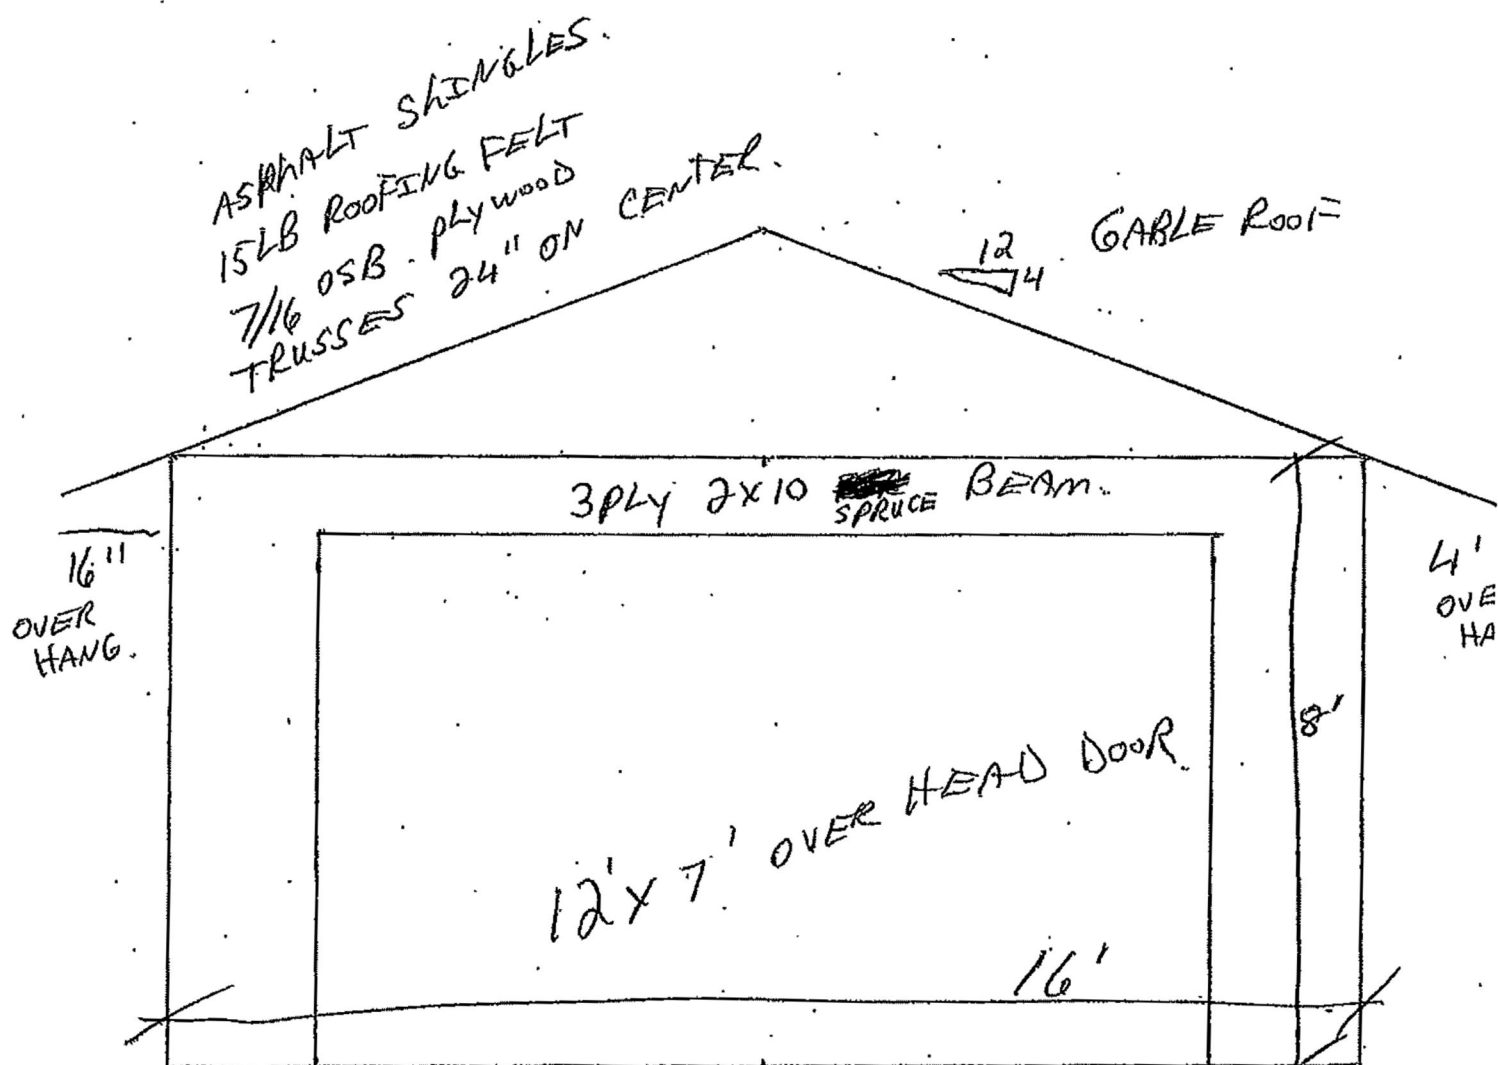 ASPhALT ShINGLES.
15LB ROOFING FELT
7/16 OSB. pLywooD
TRUSSES 24" ON CENTER.
12
4
GABLE ROOF
3PLy 2x10 SPRUCE BEAM.
16"
OVER
HANG.
4'
OVE
HA
8'
12'x 7' OVER HEAD DOOR.
16'